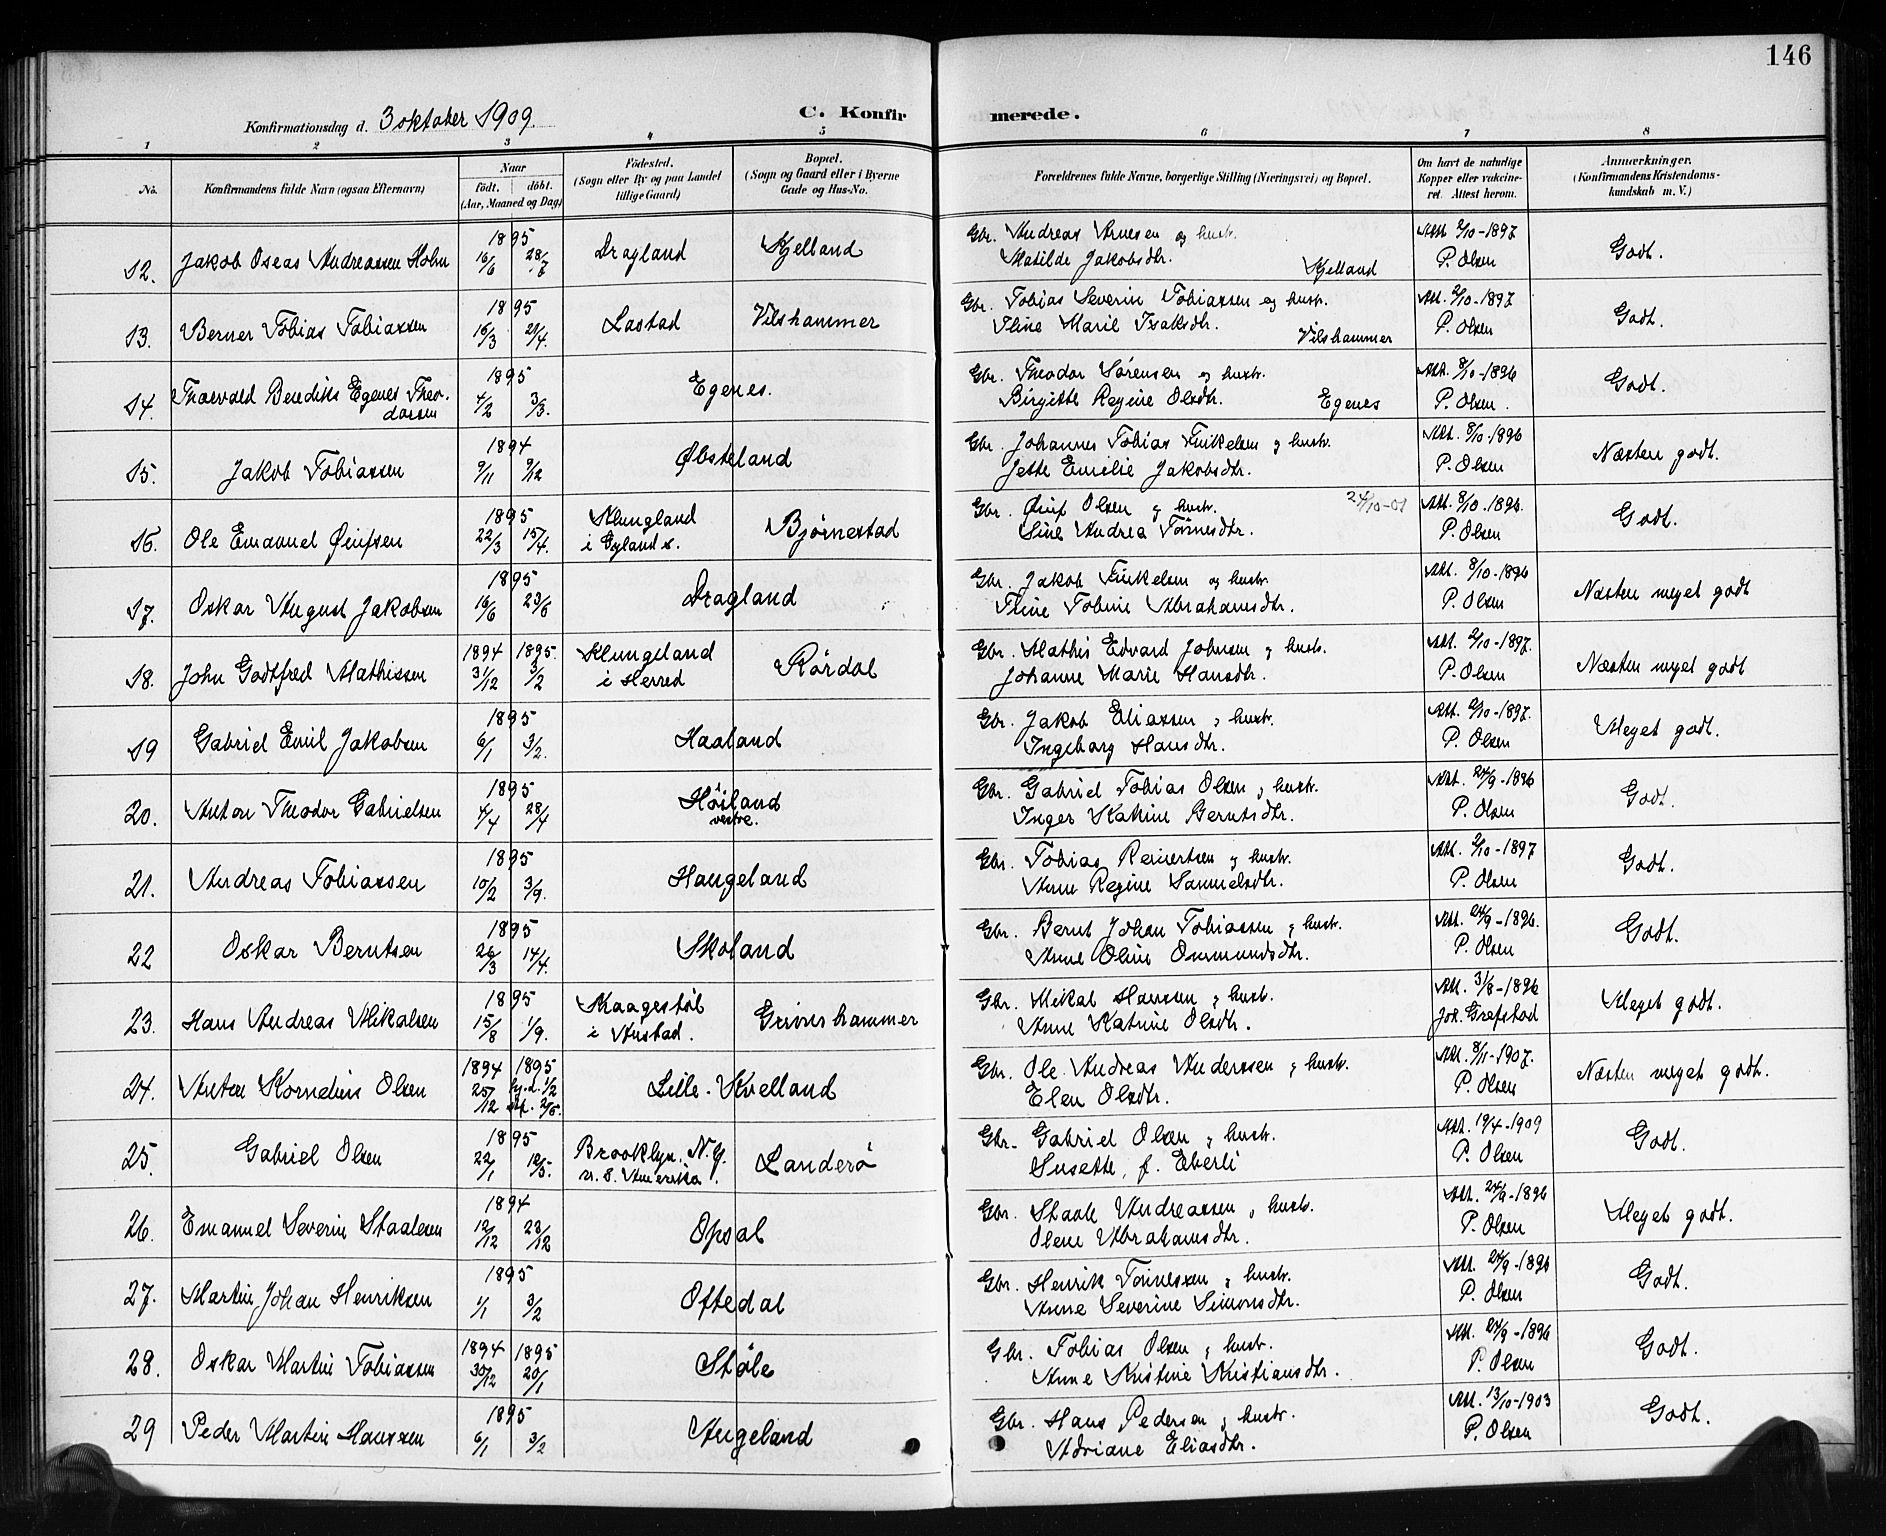 146
Konfirmationsdag d. 3 oktober 1909.
C. Konfirmerede.
1 2 3 4 5 6 7 8
No. Konfirmandens fulde Navn (ogsaa Efternavn) Naar født. døbt. (Aar, Maaned og Dag) Fødested. (Sogn eller By og paa Landet tillige Gaard) Bopæl. (Sogn og Gaard eller i Byerne Gade og Hus-No. Forældrenes fulde Navne, borgerlige Stilling (Næringsvei) og Bopæl. Om havt de naturlige Kopper eller vakcineret. Attest herom. Anmærkninger. (Konfirmandens Kristendomskundskab m. V.)
12. Jakob Oseas Andreassen Holm 1895 16/6 28/7 Dragland Kjelland Gbr. Andreas Arnesen og hustr. Matilde Jakobsdtr. Kjelland Att. 2/10-1897 P. Olsen Godt.
13. Berner Tobias Tobiassen 1895 16/3 29/4. Lastad Vilshammer Gbr. Tobias Severin Tobiassen og hustr. Iline Marie Isaksdtr. Vilshammer Att. 2/10-1897 P. Olsen Godt.
14. Thorvald Bendiks Egenes Theodorsen 1895 4/2 3/3. Egenes. Gbr. Theodor Sørensen og hustr. Birgitte Regine Olsdtr. Egenes Att. 8/10-1896 P. Olsen. Godt.
15. Jakob Tobiassen 1894 9/11 9/12 Øbsteland Gbr. Johannes Tobias Finkelsen og hustr. Jette Emilie Jakobsdtr. Att. 8/10-1896 P. Olsen Næsten godt.
16. Ole Emanuel Øiufsen 1895 22/3 15/4. Klungland i Gylands. Bjørnestad Gbr. Øiuf Olsen og hustr. Sine Andrea Tønnesdtr. 24/10-01 Att. 8/10-1896. P. Olsen Godt.
17. Oskar August Jakobsen 1895 16/6 23/6 Dragland Gbr. Jakob Finkelsen og hustr. Tline Tobine Abrahamsdtr. Att. 8/10-1896 P. Olsen Næsten meget godt
18. John Godtfred Mathissen 1894 31/12 1895. 3/2 Klungeland i Herred Rørdal Gbr. Mathis Edvard Johnsen og hustr. Johanne Marie Hansdtr. Att. 2/10-1897. P. Olsen Næsten meget godt
19 Gabriel Emil Jakobsen 1895 6/1 3/2. Haaland Gbr. Jakob Eliassen og hustr. Ingeborg Hansdtr. Att. 2/10-1897. P. Olsen Meget godt.
20. Anton Theodor Gabrielsen 1895 4/4 28/4 Høiland vestre. Gbr. Gabriel Tobias Olsen og hustr. Inger Katine Berntsdtr. Att. 24/9-1896 P. Olsen Godt.
21. Andreas Tobiassen 1895 10/2 3/9. Haugeland Gbr. Tobias Reinertsen og hustr. Anne Regine Samuelsdtr. Att. 2/10-1897 P. Olsen Godt.
22 Oskar Berntsen 1895 26/3 14/4. Skoland Gbr. Bernt Johan Tobiassen og hustr. Anne Oline Ommundsdtr. Att. 24/9-1896. P. Olsen Godt.
23. Hans Andreas Mikalsen 1895 15/8 1/9. Skaagestøl i Austad. Grivershammer Gbr. Mikal Hanssen og hustr. Anne Katrine Olsdtr. Att. 31/8-1896 Joh. Grefstad Meget godt.
24. Anton Kornelius Olsen 1894 25/12 1895 hj.d. 1/2 stf. 2/5. Lille-Kvelland Gbr. Ole Andreas Anderssen og hustr. Elen Olsdtr. Att. 8/11-1907. P. Olsen Næsten meget godt.
25. Gabriel Olsen 1895 22/1 12/5. Brooklyn, N.Y. n. S. Amerika. Landerø Gbr. Gabriel Olsen og hustr. Susette, f. Eberli Att. 19/4-1909 P. Olsen Godt.
26. Emanuel Severin Staalesen 1894 12/12 23/12 Opsal Gbr. Staale Andreassen og hustr. Olene Abrahamsdtr. Att. 24/9-1896 P. Olsen Meget godt.
27. Martin Johan Henriksen 1895 1/1 3/2 Oftedal Gbr. Henrik Tønnessen og hustr. Anne Severine Simonsdtr. Att. 24/9-1896 P. Olsen Godt.
28. Oskar Martin Tobiassen 1894 30/12 1895 20/1 Støle Gbr. Tobias Olsen og hustr. Anne Kristine Kristiansdtr. Att. 24/9-1896 P. Olsen Godt.
29 Peder Martin Hanssen 1895 6/1 3/2 Augeland Gbr. Hans Pedersen og hustr. Adriane Eliasdtr. Att. 13/10-1903 P. Olsen Godt.